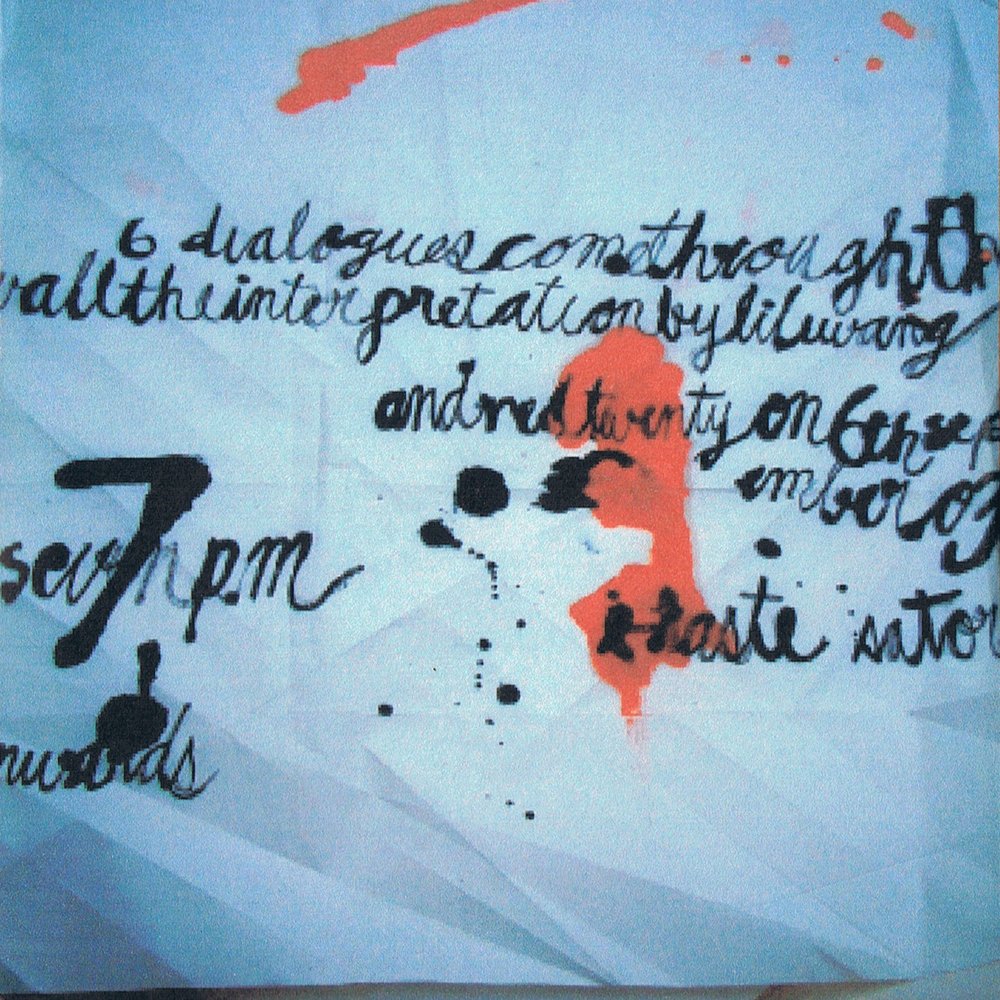 6 dialogues come through th
wall the interpretation by liluwang
and red twenty on 6th sep
ember 03
7
seven p.m
i-haste isator
nwards